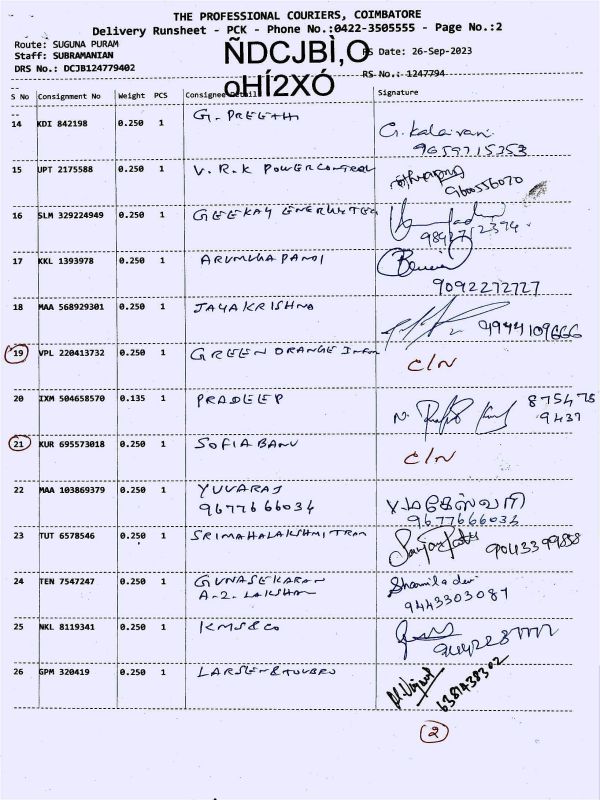 THE PROFESSIONAL COURIERS, COIMBATORE
Delivery Runsheet - PCK - Phone No.:0422-3505555 - Page No.:2
Route: SUGUNA PURAM
Staff: SUBRAMANIAN
DRS No.: DCJB124779402
ÑDCJBÌ,O
oHÍ2XÓ
RS Date: 26-Sep-2023
RS No.: 1247794
S No Consignment No Weight PCS Consignee Detail Signature
14 KDI 842198 0.250 1 G. PREETHI G. Kalaivani
9659715353
15 UPT 2175588 0.250 1 V.R.K POWERCONTROL
9600556070
16 SLM 329224949 0.250 1 GEEKAY
9842712394
17 KKL 1393978 0.250 1 ARUMUGA PANDI
9092272727
18 MAA 568929301 0.250 1 JAYAKRISHNA 9944109666
19 VPL 220413732 0.250 1 GREEN ORANGE C/N
20 IXM 504658570 0.135 1 PRADEEP 875475
9437
21 KUR 695573018 0.250 1 SOFIA BANU C/N
22 MAA 103869379 0.250 1 YUVARAJ
9677666034
9677666034
23 TUT 6578546 0.250 1 SRIMAHALAKSHMI
24 TEN 7547247 0.250 1 GUNASEKARAN Shamiladevi
A-2. LAKSHAN 9443303087
25 NKL 8119341 0.250 1 KMS&CO
26 GPM 320419 0.250 1 LARSEN & TOUBRO 6381438302
2